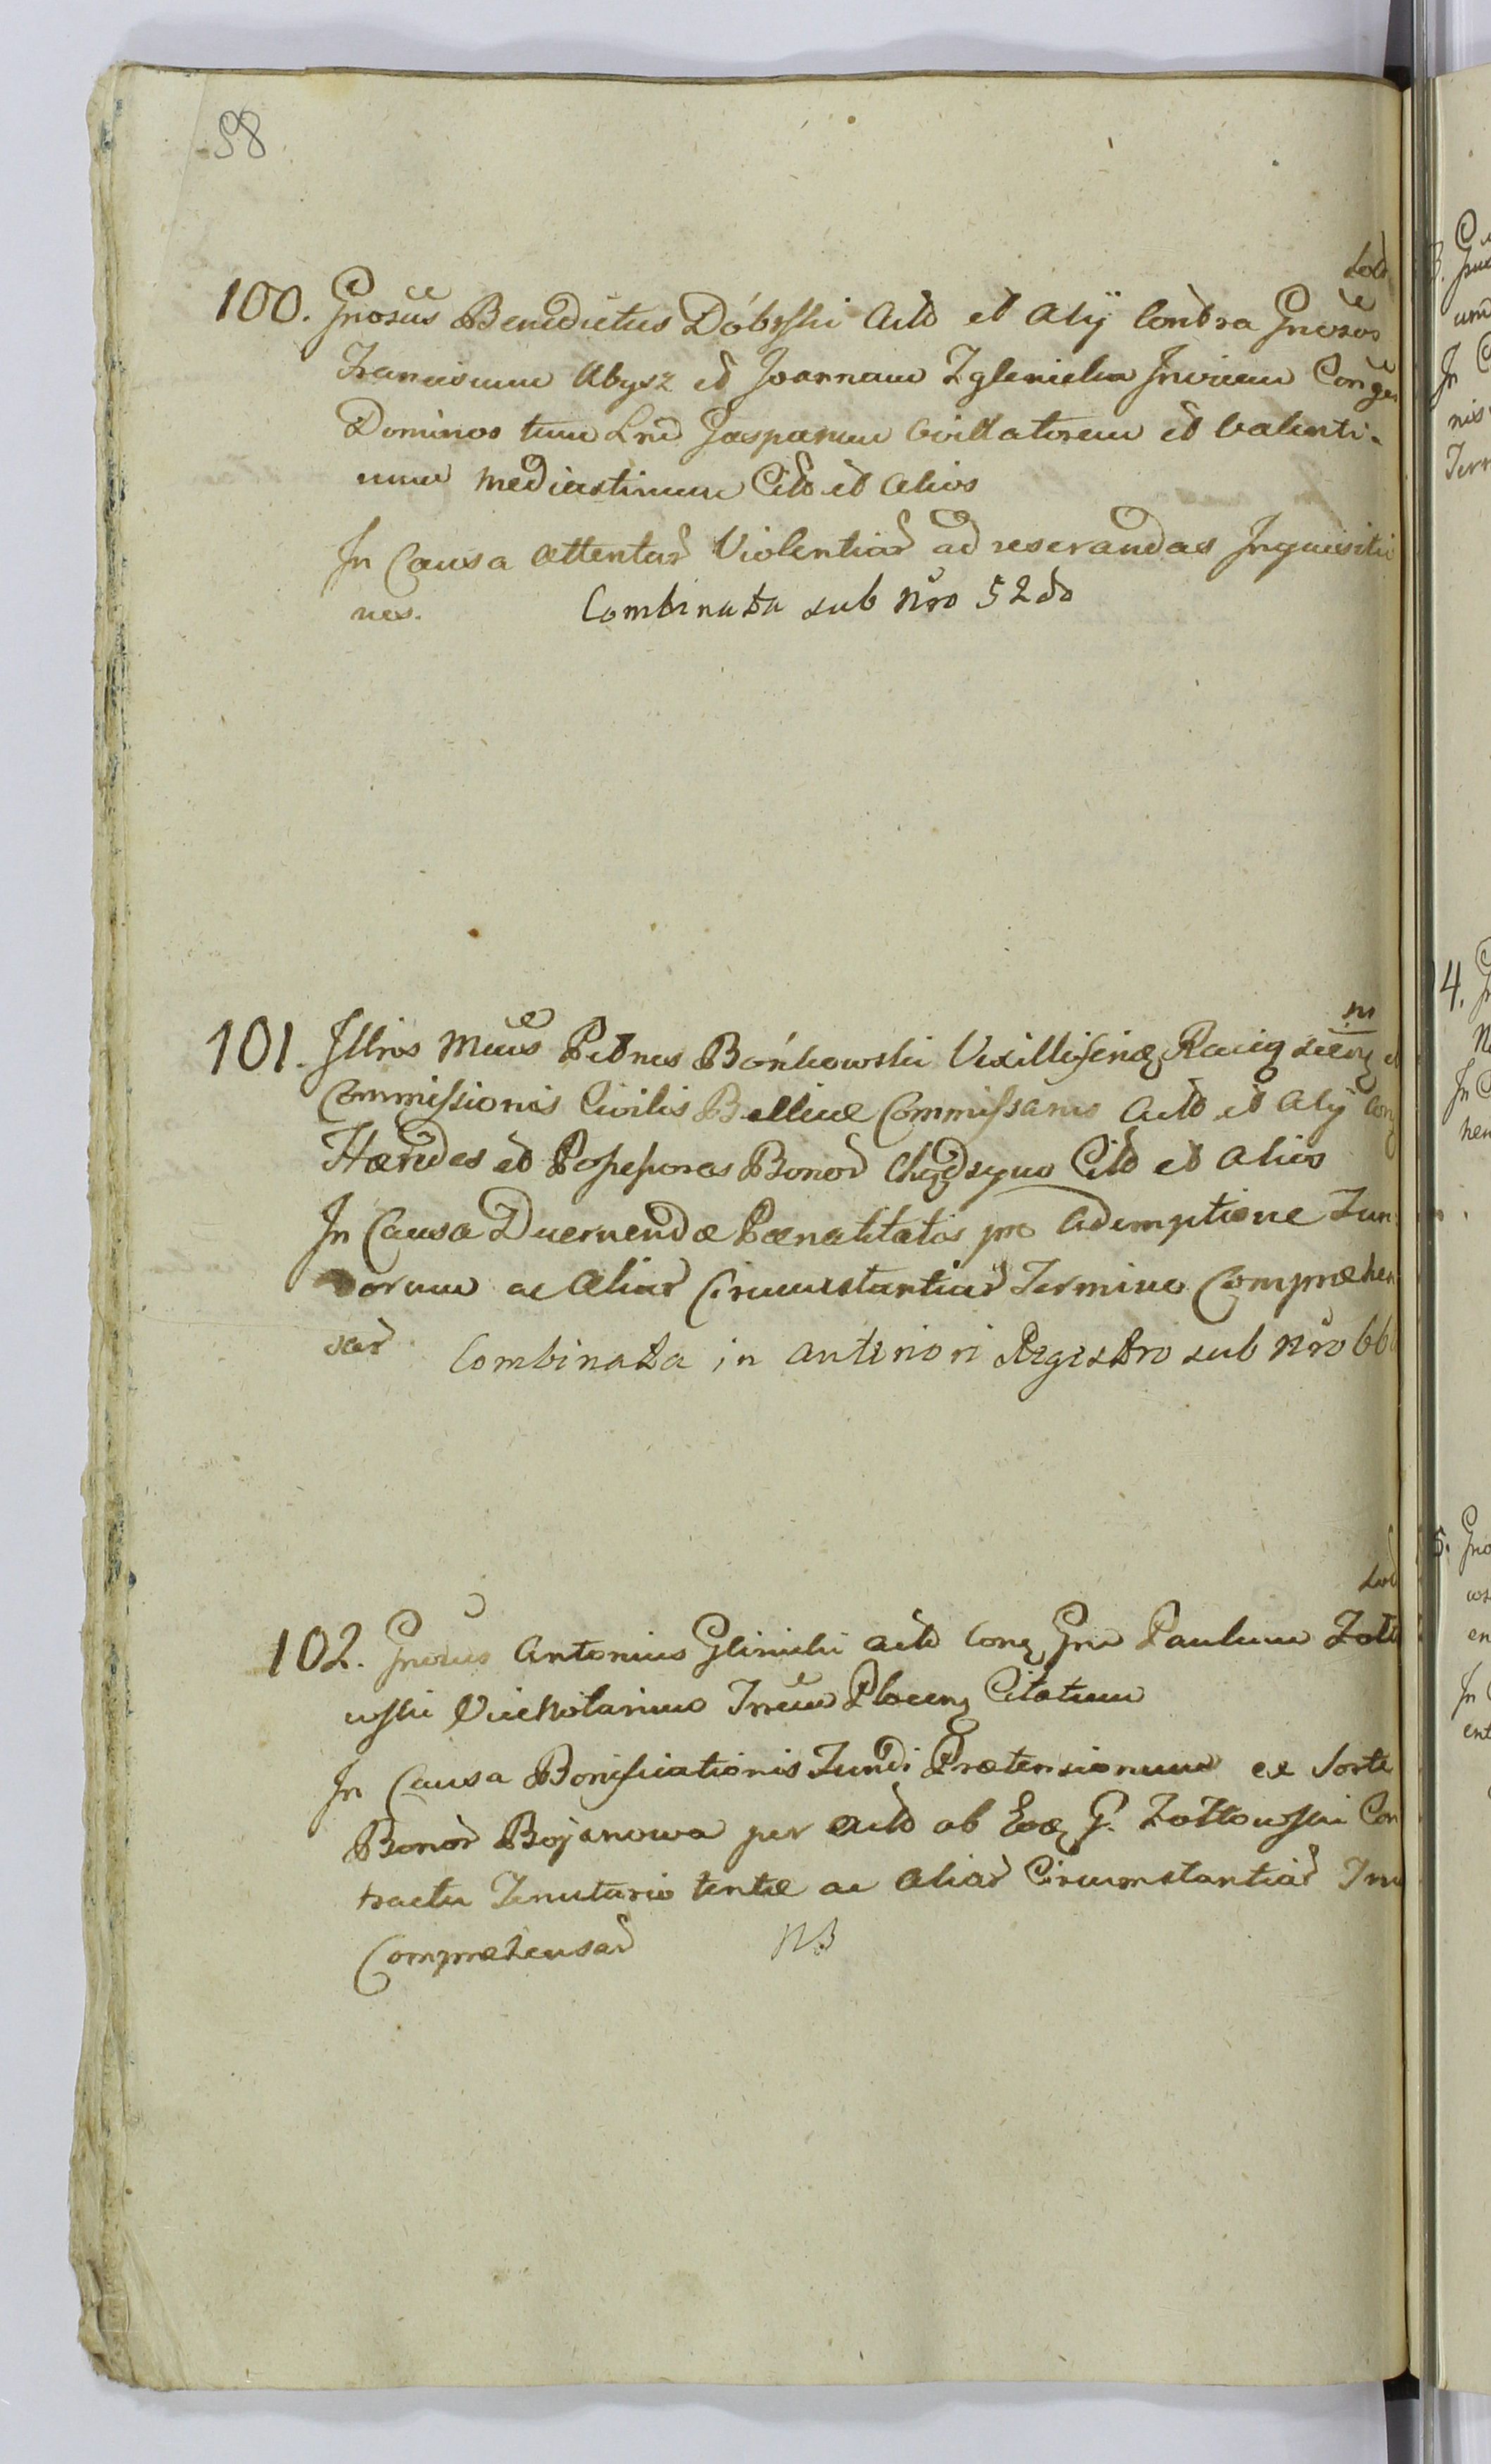 98
Sold
100. Gnosus Benedictus Dóbrski Actd et Alij Contra Gnosos
Franciscum Abysz et Joannam Zglenicka Invicem Conges
Dominos tum Lrud Gasparum Civillatorem et Valenti-
num Mediastinum Citd et Alios
In Causa Attentar Violentiar ad reserandas Inquisitio
nes. Combinata sub Nro 52do
m
101. Illris Mcus Petrus Bońkowski Vexilliferidę Raciąż
Commissionis Civilis Bellicæ Commissarius Actd et Alij Con
Hæredes et Possessores Bonor Citd et Alios
In Causa Decernendæ Pœnalitatis pro Ademptione Fun
dorum ac Aliar Circumstantiar Termino Compræhen
sar Combinata in anteriori Regestro sub Nro 66
Sol
102. Gnosus Antonius Glinicki Actd Conz Gnu Paulum Zołto
wski Vicenotarium Trrem Plocenz Citatum
In Causa Bonificationis Fundi Prætensionum ex Sorte
Bonor Bojanowa per Actd ab Eoq G. Zołtowski Con
tractu Tenutario tentæ ac Aliar Circumstantiar Trm
Compræhensar NB